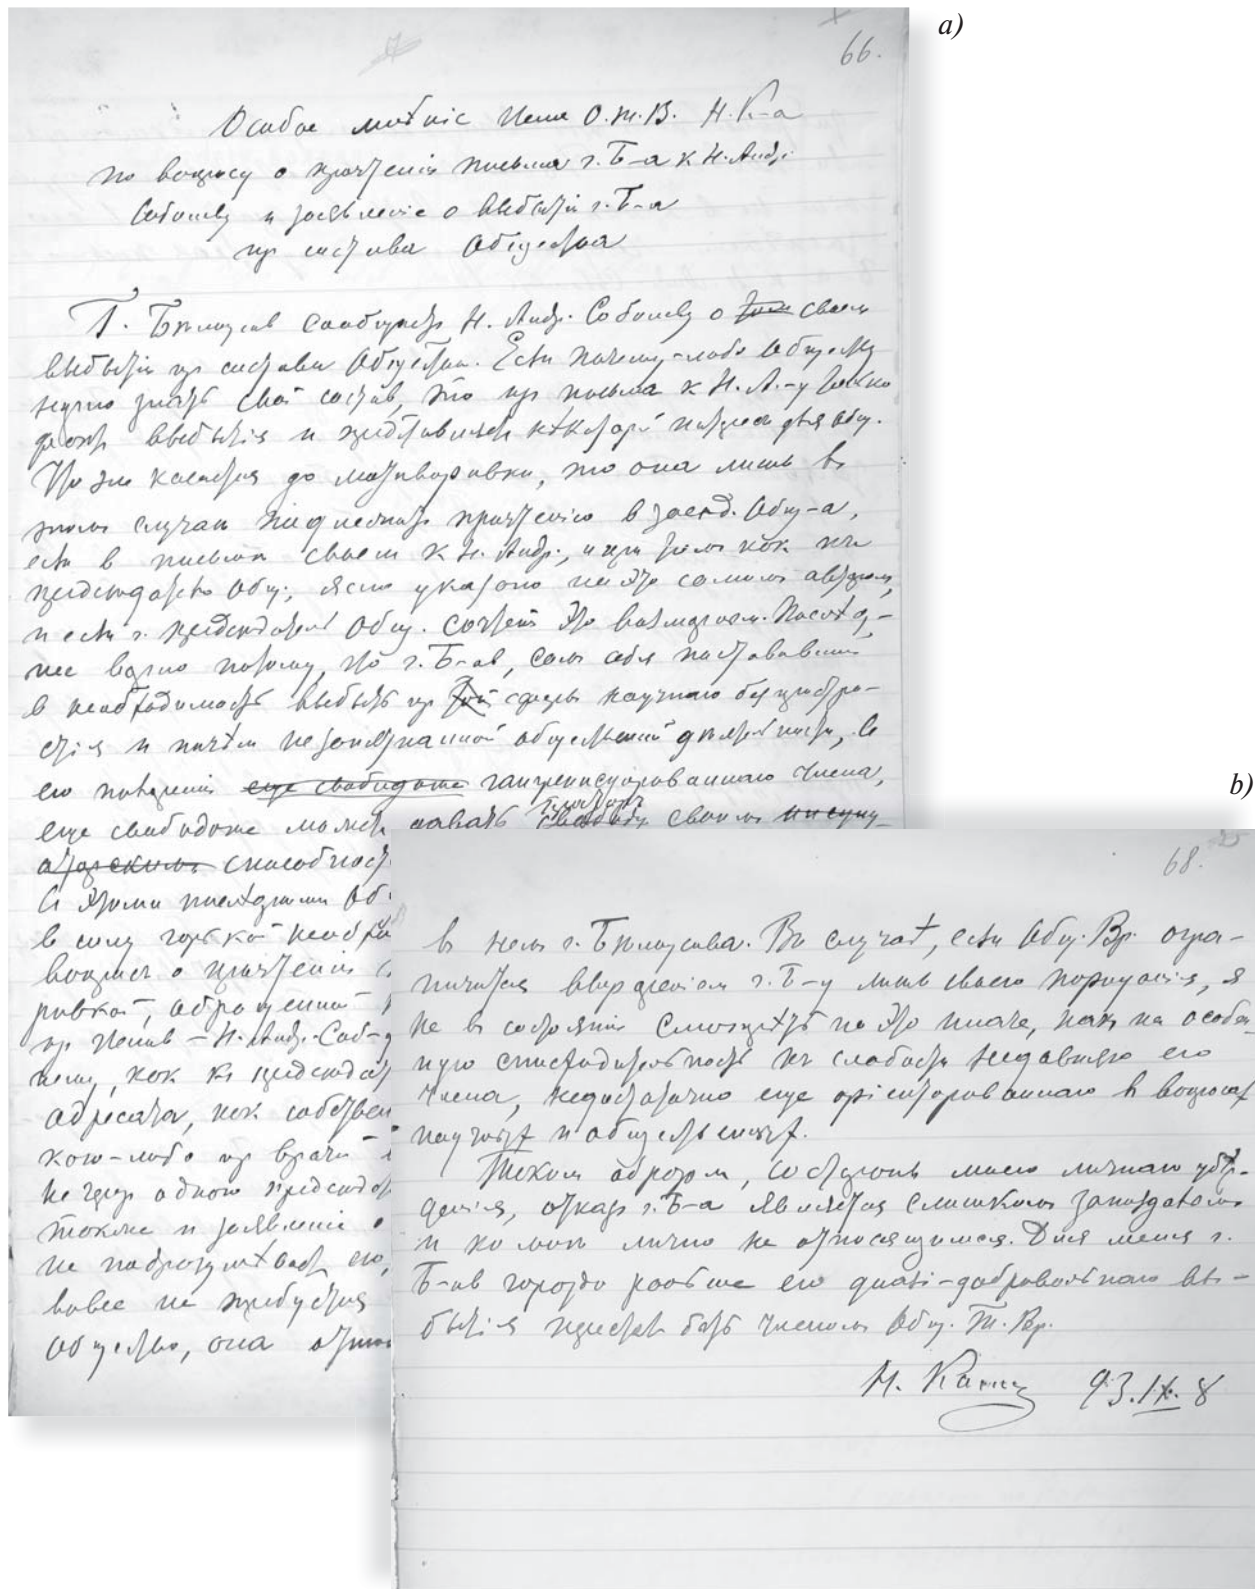 a)
66.
Особое мнѣніе члена О.Т.В. Н. К-а
по вопросу о прочтеніи письма г. Б-а к Н. Андр.
Соболеву и заявленіе о выбытіи г. Б-а
из состава Общества
Г. Бѣлоусов сообщает Н. Андр. Соболеву о своем
выбытіи из состава Общества. Если почему-либо Обществу
нужно знать свой состав, то из письма к Н. А-у только
факт выбытія и представляет нѣкоторый интерес для Общ.
Что же касается до мотивировки, то она лишь в
этом случаѣ подлежит прочтенію в засѣд. Общ-а,
если в письмѣ своем к Н. Андр., и при том как к
предсѣдателю Общ., ясно указано на это самим автором,
и если г. предсѣдатель Общ. сочтет это возможным. Послѣд-
нее вѣрно потому, что г. Б-ов, сам себя поставившій
в необходимость выбыть из сферы научного безпристра-
стія и ничѣм не запятнанной общественной дѣятельности, в
его поведеніи еще свободнѣе члена,
еще свободнѣе может давать своим
способност
С этими послѣдними Об
в силу горькой необхо
вопрос о прочтеніи
ровкой, обращенной
из членов – Н. Андр. Соб-
нему, как к предсѣдат
адресата, как собствен
кого-либо из врачей
не через одного предсѣдат
также и заявленіе о
не
вовсе не требуется
Общество, она
b)
68.
в нем г. Бѣлоусова. Во случаѣ, если Общ. Вр. огра-
ничится выраженіем г. Б-у лишь своего порицанія, я
не в состояніи смотрѣть на это иначе, как на особен-
ную снисходительность к слабости недавняго его
члена, недостаточно еще оріентированнаго в вопросах
научных и общественных.
Таким образом, со стороны моего личнаго убѣ-
жденія, отказ г. Б-а является слишком запоздалым
и ко мнѣ лично не относящимся. Для меня г.
Б-ов гораздо раньше его quasi-добровольнаго вы-
бытія перестал быть членом Общ. Т. Вр.
Н. Кащ 93.IX.8